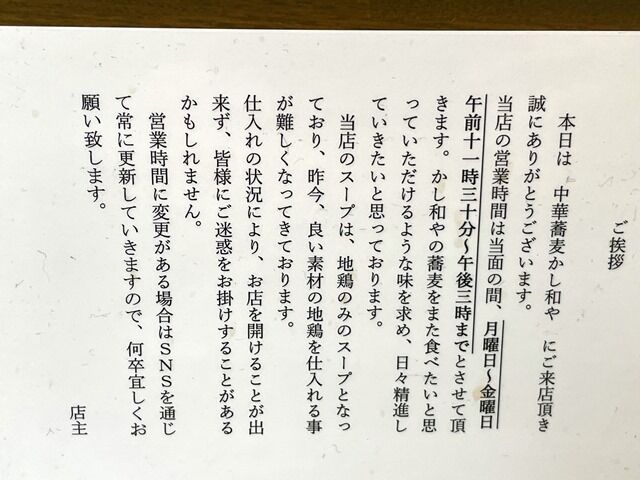 ご挨拶
本日は　中華蕎麦かし和や　にご来店頂き
誠にありがとうございます。
当店の営業時間は当面の間、月曜日～金曜日
午前十一時三十分～午後三時までとさせて頂
きます。かし和やの蕎麦をまた食べたいと思
っていただけるような味を求め、日々精進し
ていきたいと思っております。
当店のスープは、地鶏のみのスープとなっ
ており、昨今、良い素材の地鶏を仕入れる事
が難しくなってきております。
仕入れの状況により、お店を開けることが出
来ず、皆様にご迷惑をお掛けすることがある
かもしれません。
営業時間に変更がある場合はＳＮＳを通じ
て常に更新していきますので、何卒宜しくお
願い致します。
店主